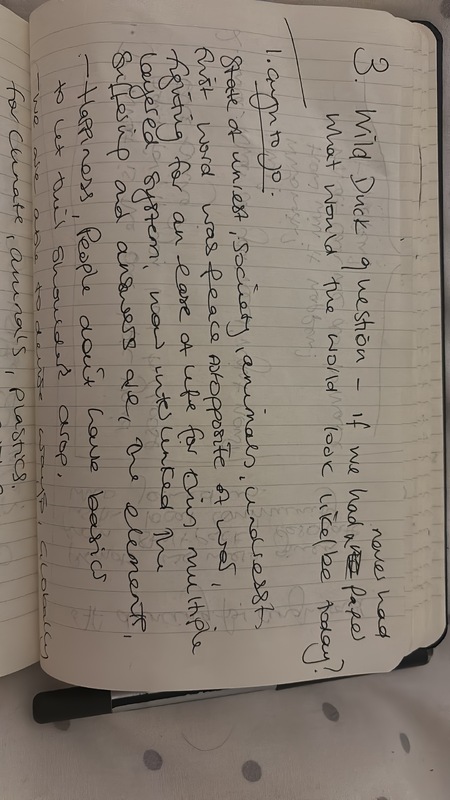 3. Wild Duck question - if we had never had Paper
What would the world look like/be today?
1.
State of unrest, Society, animals, underest,
first word was peace opposite of war,
fighting for an ease of life for this multiple
layered system, now interlinked the
Suffering and answers are, the elements,
- Happiness, People don't have basics
to let this shouldn't drop.
- we are able to
for climate, animals, plastics.